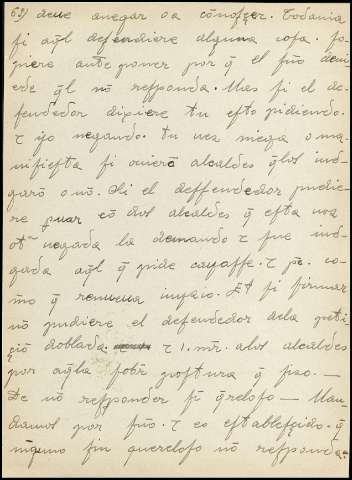 63) deue anegar o a coñosçer. Todauia
si aq̃l defendiere alguna cosa. fo-
piere ante poner por q̃ el fuo deui-
ede q̃l nõ responda. Mas si el de-
fendedor dixiere tu esto pidiendo.
τ yo negando. tu vez niega o ma-
nifiesta si ouierẽ alcaldes q̃los iud-
garõ o nõ. Si el deffendedor pudie-
re prouar cõ dos alcaldes q̃ esta uoz
otra negada la demando τ fue iud-
gada aq̃l q̃ pide cayasse. τ pe. co-
mo q̃ renueua iuyzio. Et si firmar
nõ pudiere el defendedor dela peti-
çiõ doblada. τ 1. mr̃. alos alcaldes
por aq̃lla sobr̃ postura q̃ fizo. —
De nõ responder si q̃reloso — Man-
damos por fuo. τ es establesçido. q̃
ninguno sin quereloso nõ responda.